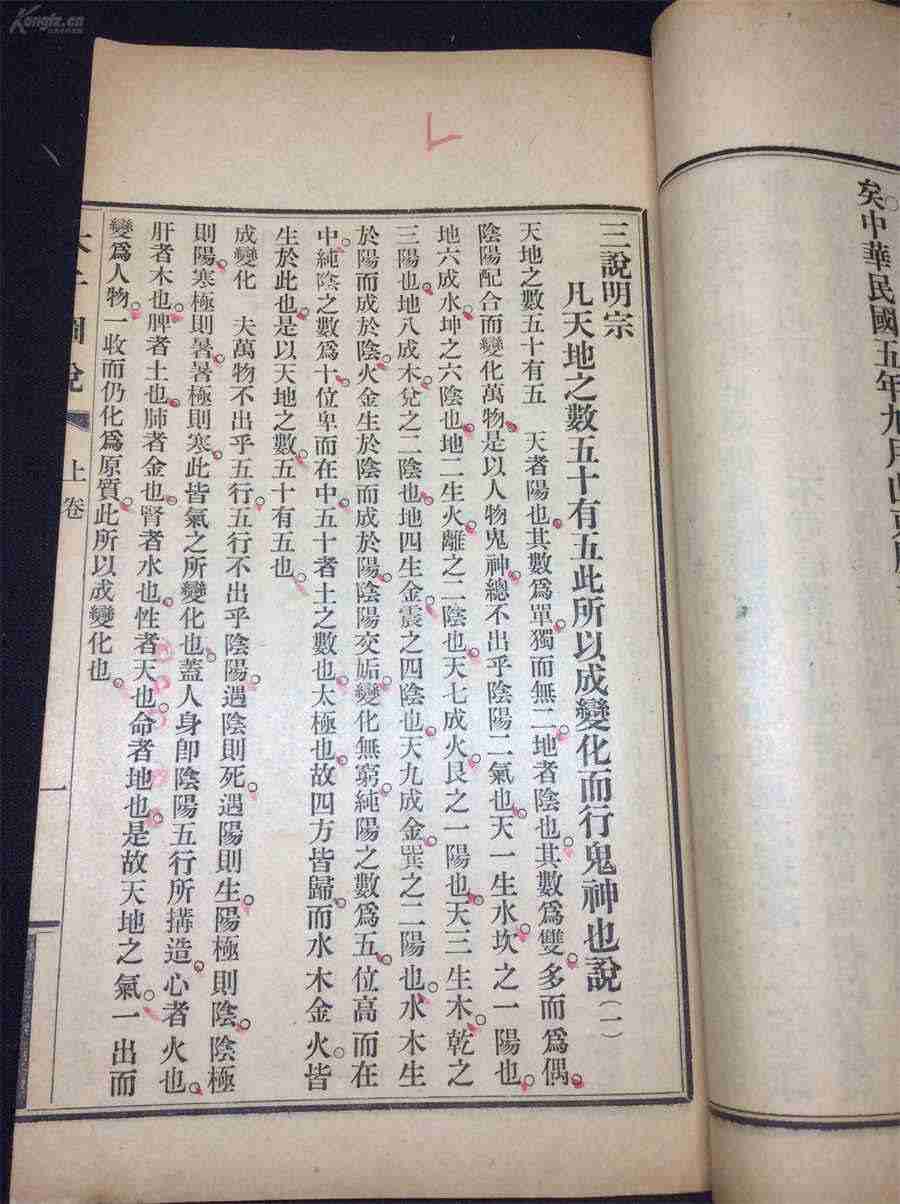 矣中華民國五年九月山東
三說明宗
凡天地之數五十有五此所以成變化而行鬼神也說(一)
天地之數五十有五　天者陽也。其數爲單獨而無二。地者陰也。其數爲雙。多而爲偶。
陰陽配合而變化萬物。是以人物鬼神。總不出乎陰陽二氣也。天一生水。坎之一陽也。
地六成水。坤之六陰也。地二生火。離之二陰也。天七成火。艮之一陽也。天三生木。乾之
三陽也。地八成木。兌之二陰也。地四生金。震之四陰也。天九成金。巽之二陽也。水木生
於陽而成於陰。火金生於陰而成於陽。陰陽交姤。變化無窮。純陽之數爲五。位高而在
中。純陰之數爲十。位卑而在中。五十者土之數也。太極也。故四方皆歸。而水木金火。皆
生於此也。是以天地之數。五十有五也。
成變化　夫萬物不出乎五行。五行不出乎陰陽。遇陰則死。遇陽則生。陽極則陰。陰極
則陽。寒極則暑。暑極則寒。此皆氣之所變化也。蓋人身卽陰陽五行所搆造。心者火也。
肝者木也。脾者土也。肺者金也。腎者水也。性者天也。命者地也。是故天地之氣。一出而
變爲人物。一收而仍化爲原質。此所以成變化也。
圖說
上卷
一
Kongfz.cn